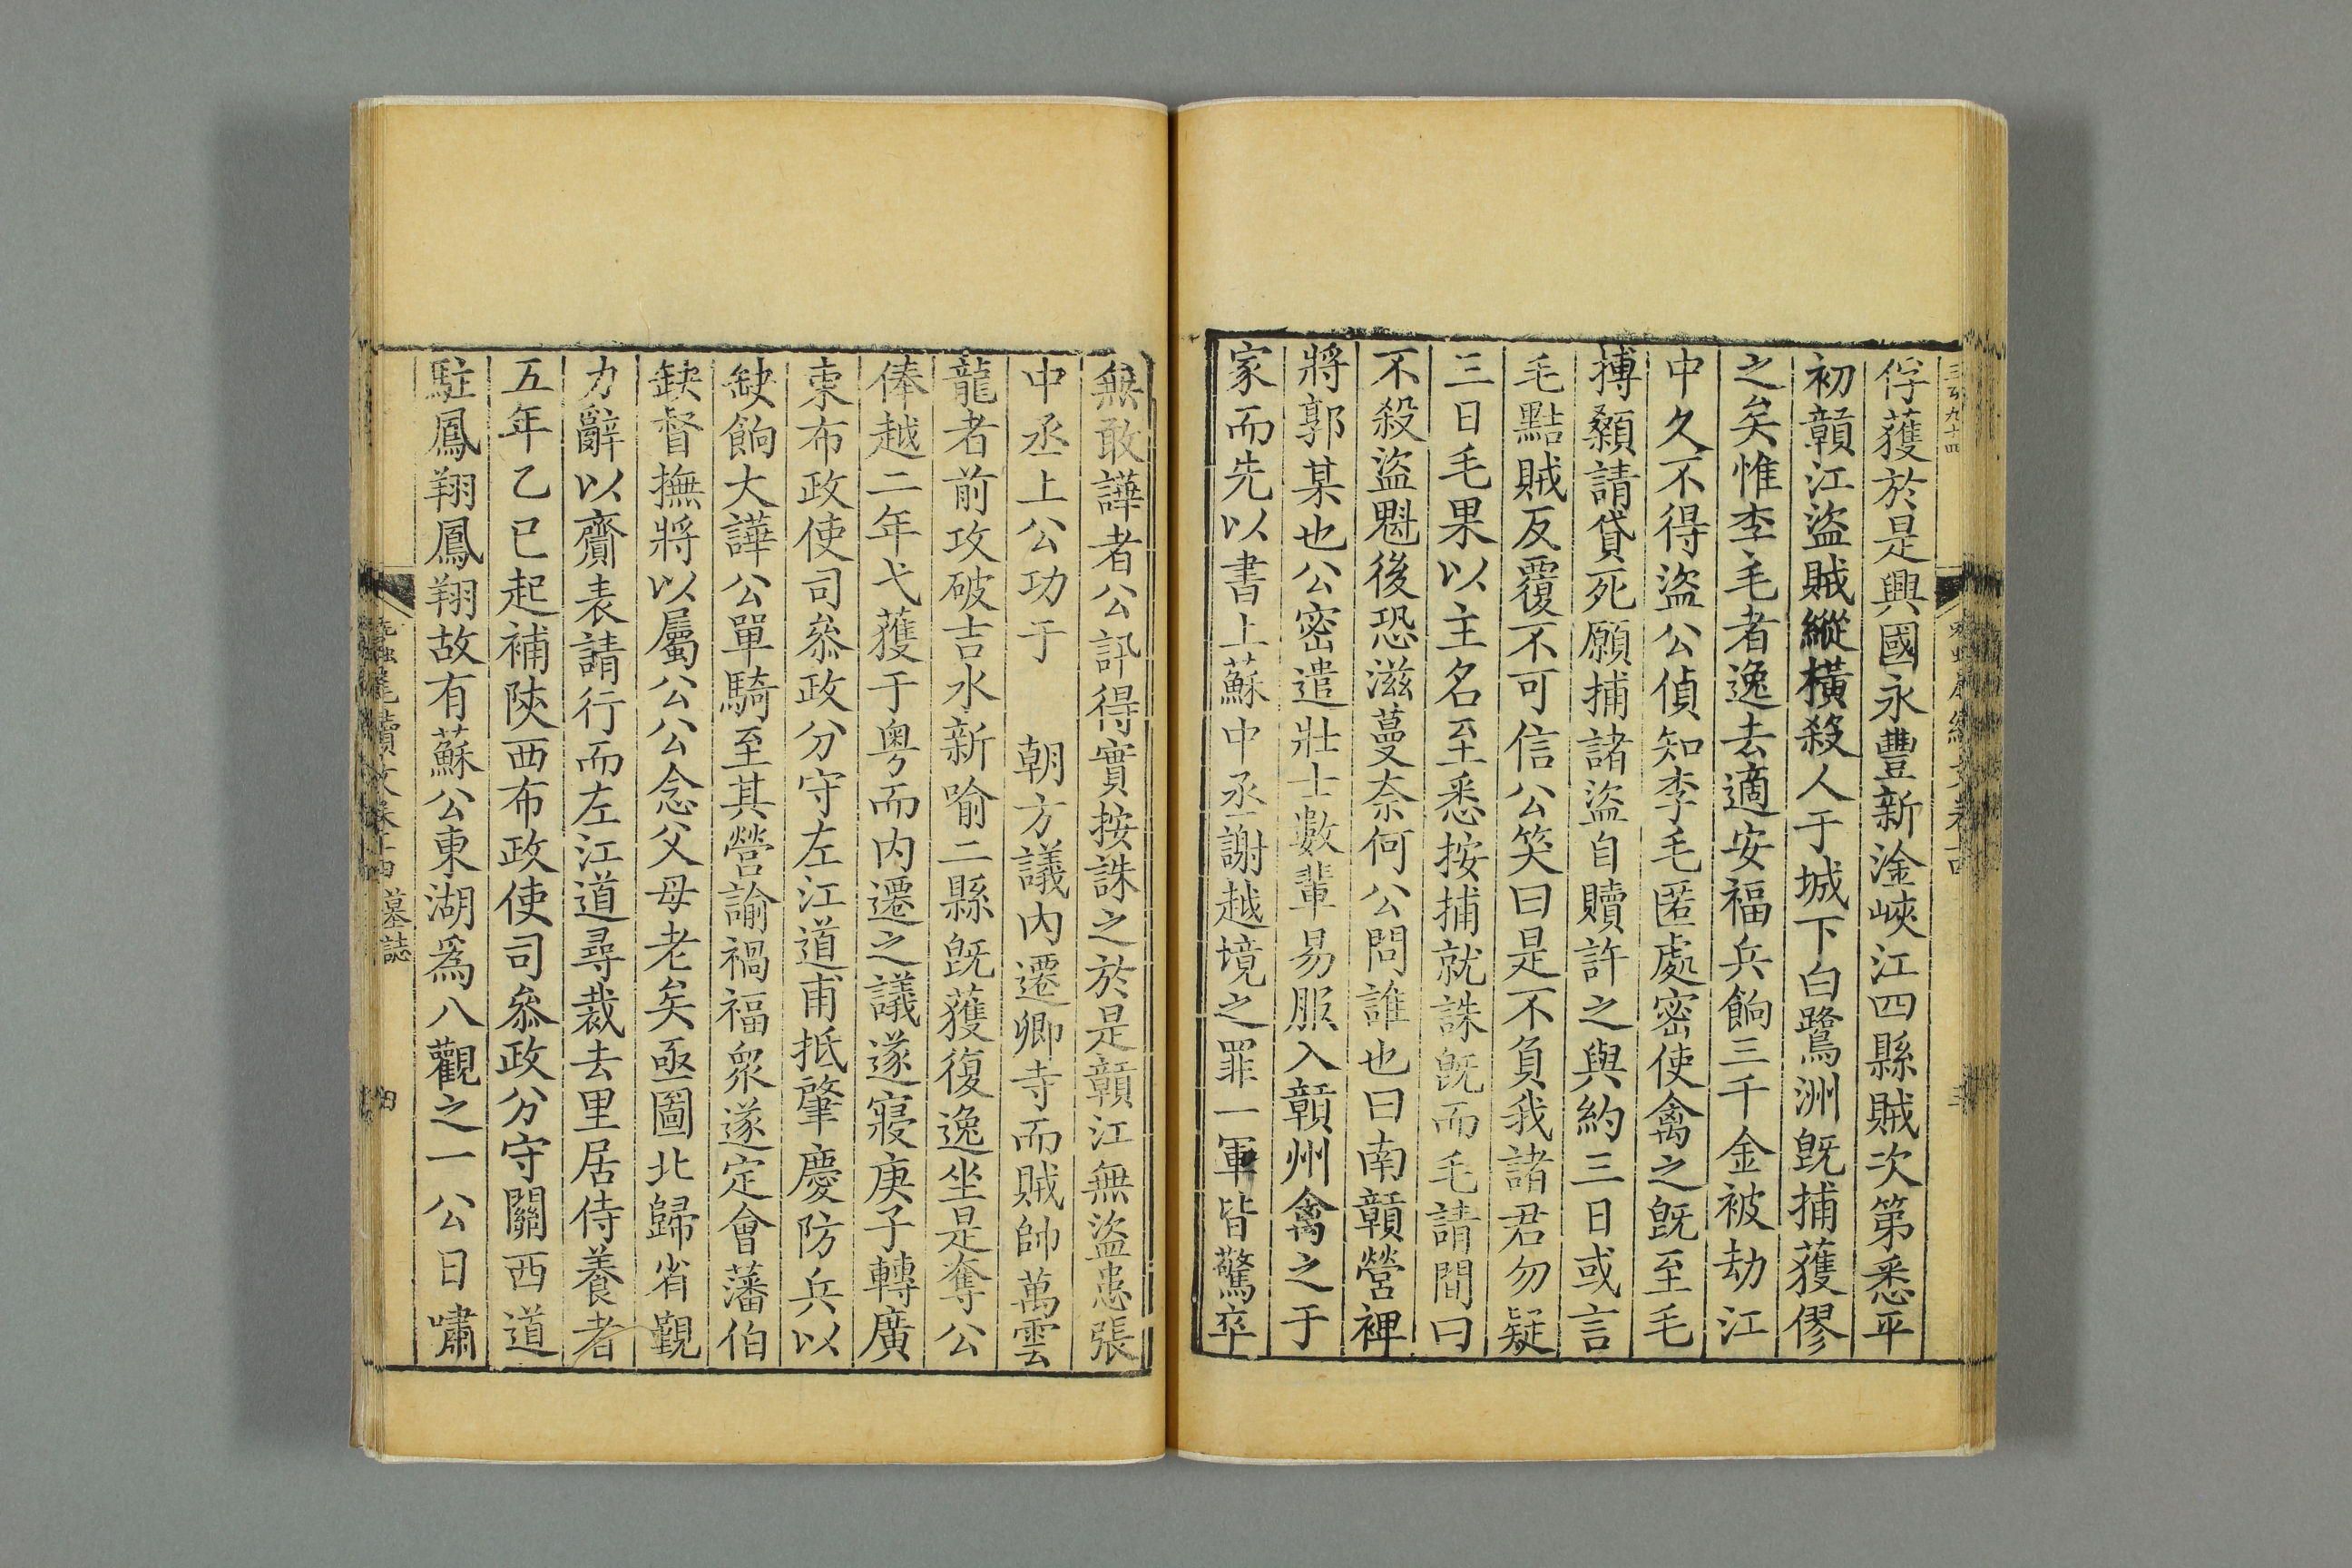 三百九十四
俘獲於是興國永豐新淦峽江四縣賊次第悉平
初贛江盜賊縱橫殺人于城下白鷺洲旣捕獲僇
之矣惟李毛者逸去適安福兵餉三千金被劫江
中久不得盜公偵知李毛匿處密使禽之旣至毛
搏顙請貸死願捕諸盜自贖許之與約三日或言
毛點賊反覆不可信公笑曰是不負我諸君勿疑
三日毛果以主名至悉按捕就誅旣而毛請間曰
不殺盜魁後恐滋蔓奈何公問誰也曰南贛營裨
將郭某也公密遣壯士數輩易服入贛州禽之于
家而先以書上蘇中丞謝越境之罪一軍皆驚卒
無敢譁者公訊得實按誅之於是贛江無盜患張
中丞上公功于 朝方議內遷卿寺而賊帥萬雲
龍者前攻破吉水新喻二縣旣獲復逸坐是奪公
俸越二年弋獲于粵而內遷之議遂寢庚子轉廣
東布政使司叅政分守左江道甫抵肇慶防兵以
缺餉大譁公單騎至其營諭禍福衆遂定會藩伯
缺督撫將以屬公公念父母老矣亟圖北歸省覲
力辭以齎表請行而左江道尋裁去里居侍養者
五年乙巳起補陝西布政使司叅政分守關西道
駐鳳翔鳳翔故有蘇公東湖爲八觀之一公日嘯
墓誌